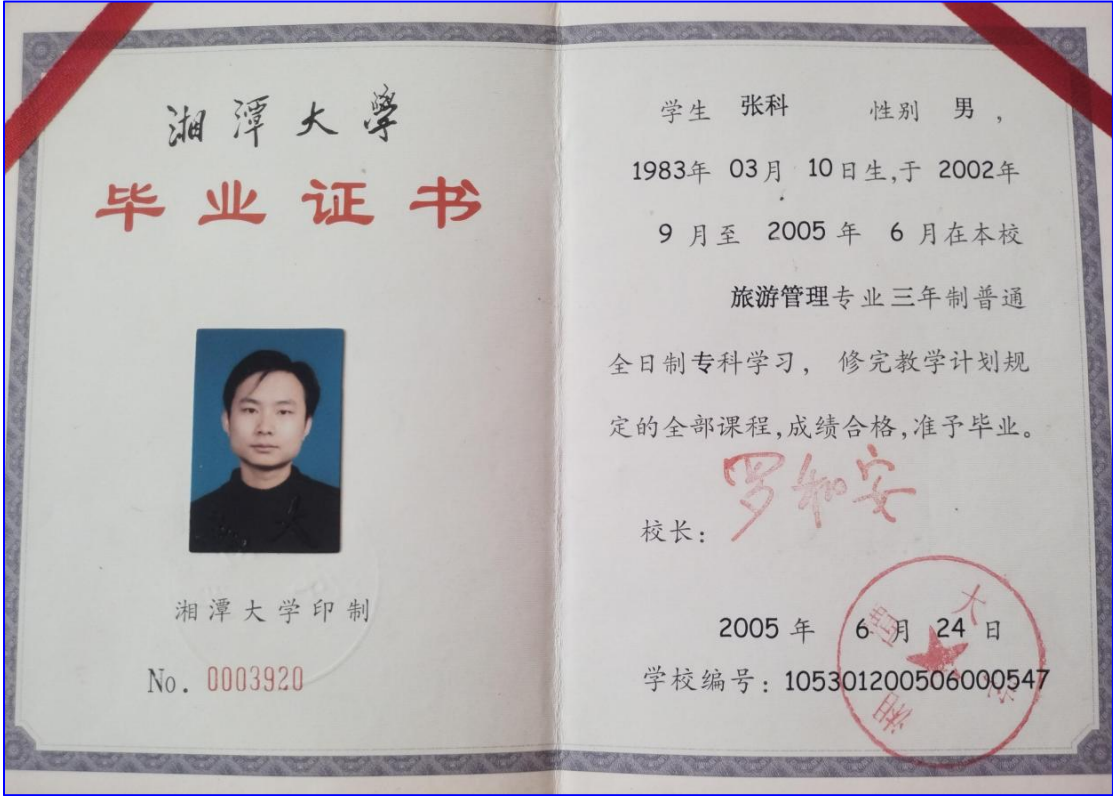 湘潭大學
毕业证书
湘潭大学印制
No. 0003920
学生 张科 性别 男，
1983年 03月 10日生,于 2002年
9 月至 2005 年 6 月在本校
旅游管理专业三年制普通
全日制专科学习， 修完教学计划规
定的全部课程,成绩合格,准予毕业。
罗和安
校长：
2005 年 6 月 24 日
学校编号：105301200506000547
湘潭大学